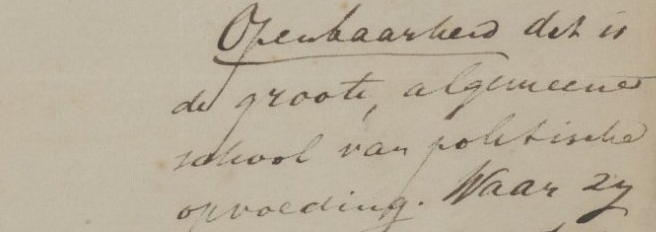 Openbaarheid dat is
de groote, algemeene
school van politische
opvoeding. Waar zy